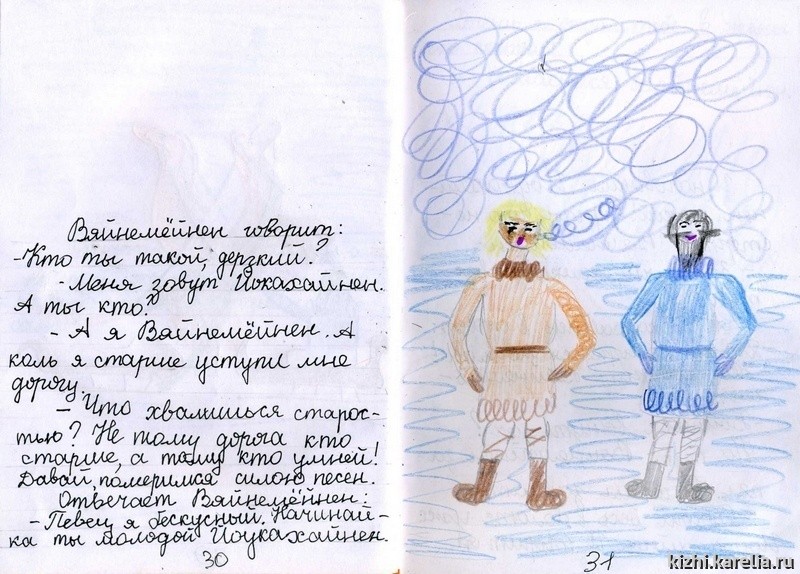 Вяйнемёйнен говорит:
-Кто ты такой, дерзкий?
- Меня зовут Йокахайнен.
А ты кто?
- А я Вяйнемёйнен. А
коль я старше уступи мне
дорогу.
- Что хвалишься старос-
тью? Не тому дорога кто
старше, а тому кто умней!
Давай, померимся силою песен.
Отвечает Вяйнемёйнен:
-Певец я бескусный. Начинай-
ка ты молодой Йоукахайнен.
30
31
kizhi.karelia.ru